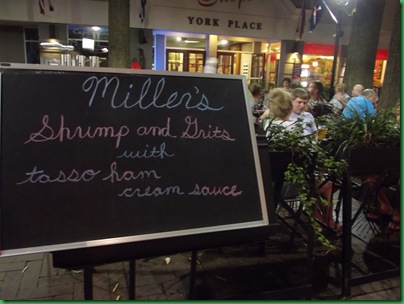 YORK PLACE
Miller's
Shrimp and Grits
with
tasso ham
cream sauce